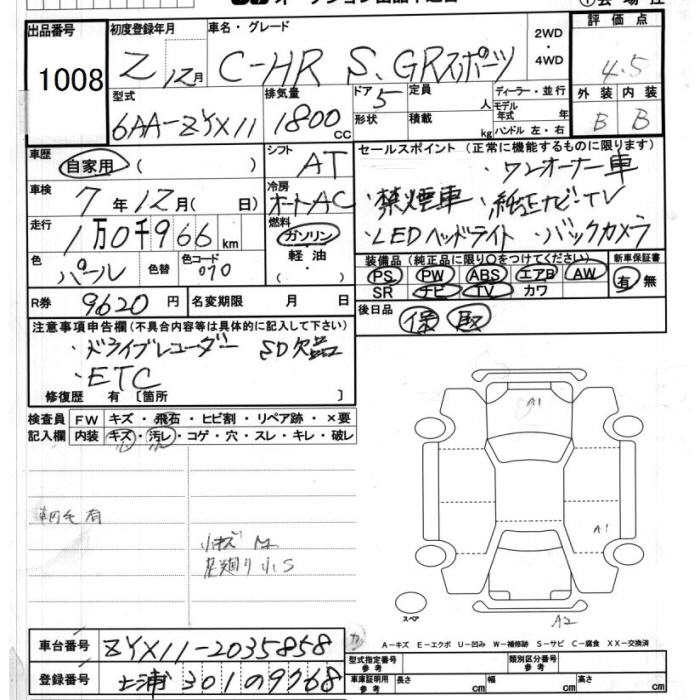 出品番号 1008
初度登録年月 Z 12月
車名・グレード C-HR S、GRスポーツ
2WD・4WD
評価点 4.5
外装 B 内装 B
型式 6AA-ZYX11
排気量 1800 CC
ドア 5
形状
定員 人
積載 kg
ディーラー・並行
モデル年式 年
ハンドル 左・右
車歴 自家用 ( )
シフト AT
車検 7年12月( 日)
冷房 オートAC
走行 1万0千966km
燃料 ガソリン
軽油
( )
色 パール 色替 色コード 070
R券 9620円 名変期限 月 日
セールスポイント (正常に機能するものに限ります)
・ワンオーナー車
・禁煙車 ・純正ナビ・TV
・LEDヘッドライト ・バックカメラ
装備品(純正品に限り○をつけてください) 新車保証書
PS PW ABS エアB AW 有 無
SR ナビ TV カワ
後日品 保 取
注意事項申告欄(不具合内容等は具体的に記入して下さい)
・ドライブレコーダー SD欠品
・ETC
修復歴 有 〔箇所 〕
検査員記入欄 FW キズ・飛石・ヒビ割・リペア跡・×要
内装 キズ・汚レ・コゲ・穴・スレ・キレ・破レ
小キズ
小S
A1
A1
A2
スペア
A-キズ E-エクボ U-凹み W-補修跡 S-サビ C-腐食 XX-交換済
車台番号 ZYX11-2035858
登録番号 土浦 301 の 9768
型式指定番号 参考 類別区分番号 参考
車庫証明用 参考 長さ cm 幅 cm 高さ cm